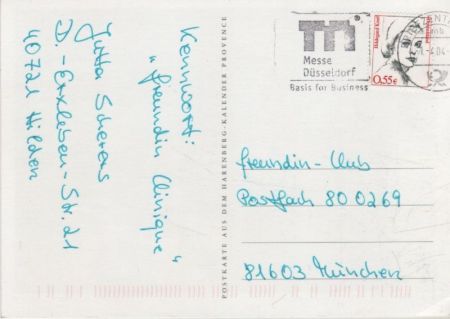 Kennwort:
"freundin Clinique"
Jutta Scherens
D.-Erxleben-Str. 21
40721 Hilden
POSTKARTE AUS DEM HARENBERG-KALENDER PROVENCE
Messe
Düsseldorf
Basis for Business
0,55€
freundin-Club
Postfach 80 02 69
81603 München